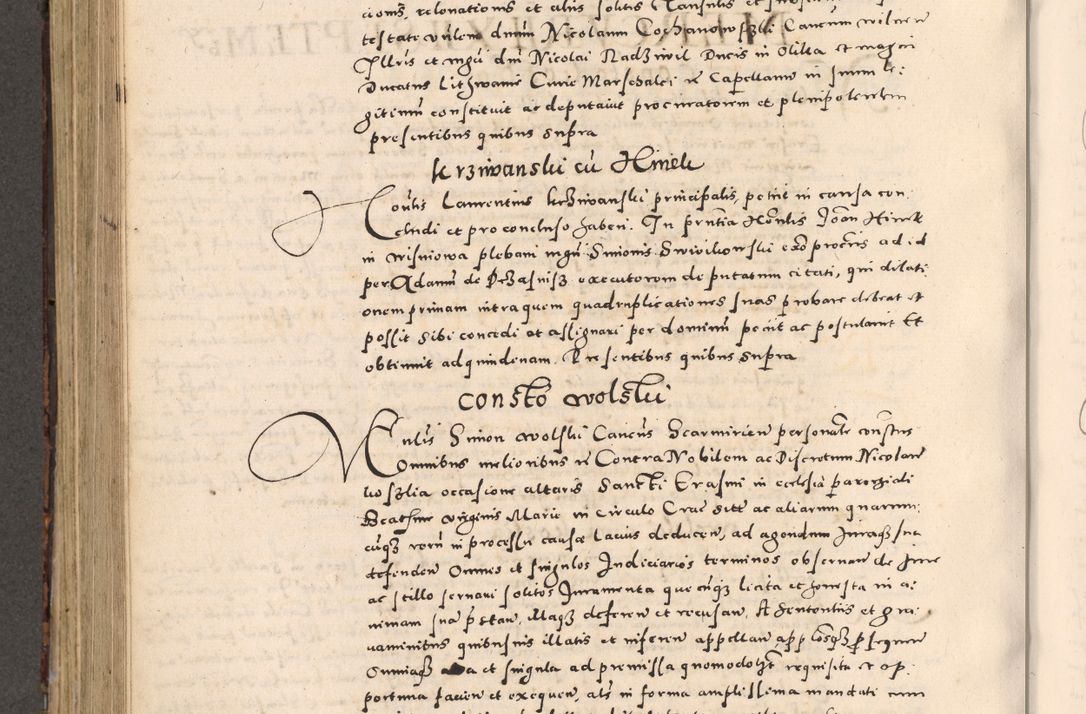 cioni, relonationis et aliis solitis Clausulis et
testate vulen dnum Nicolaum Cochanowszki Canonum
Illris et mgci dni Nicolai Radziwil Ducis in Olika et magni
Ducatus Lithwanie Curie Marschalci ꝛc Capellanum in suum le:
gitimum constituit ac deputavit procuratorem et plenipotentem
presentibus quibus supra
krziwanski cū Himek
Laurentius krziwanski principalis, petiit in causa con
cludi et pro concluso haberi. In pntia Hontis Joan Himek
in Wisniowa plebani mgri Simonis procris ad id
per Adamum de executorem deputatum citati, qui dilati
onem primam intra quem quadruplicationes suas probare debeat et
possit sibi concedi et assignari per dominum petiit ac postulavit Et
obtinuit ad quindenam. Presentibus quibus supra
Consto Wolski
Simon Wolski Canonis personalr constus
Omnibus melioribus ꝛc Contra Nobilem ac Discretum Nicolaum
occasione altaris Sancti Erasmi in ecclesia parochiali
Beatissime virginis Marie in Circulo Crac site ac aliarum quarum:
cuqz rerum in processu cause lacius deducen, ad agendum Juraqz sua
defenden Omnes et singulos Judiciarios terminos observan de jure
ac stillo servari solitos Juramenta quecuqz licita et honesta in a:
nimam sua prestan, illaqz deferen et recusan, A Sententiis et gra:
vaminibus quibusvis illatis et inferen appellan app prosequen
Omniaqz et singula ad premissa quomodolzt requisita et op
portuna facien et exequen, als in forma amplissima mandati cum